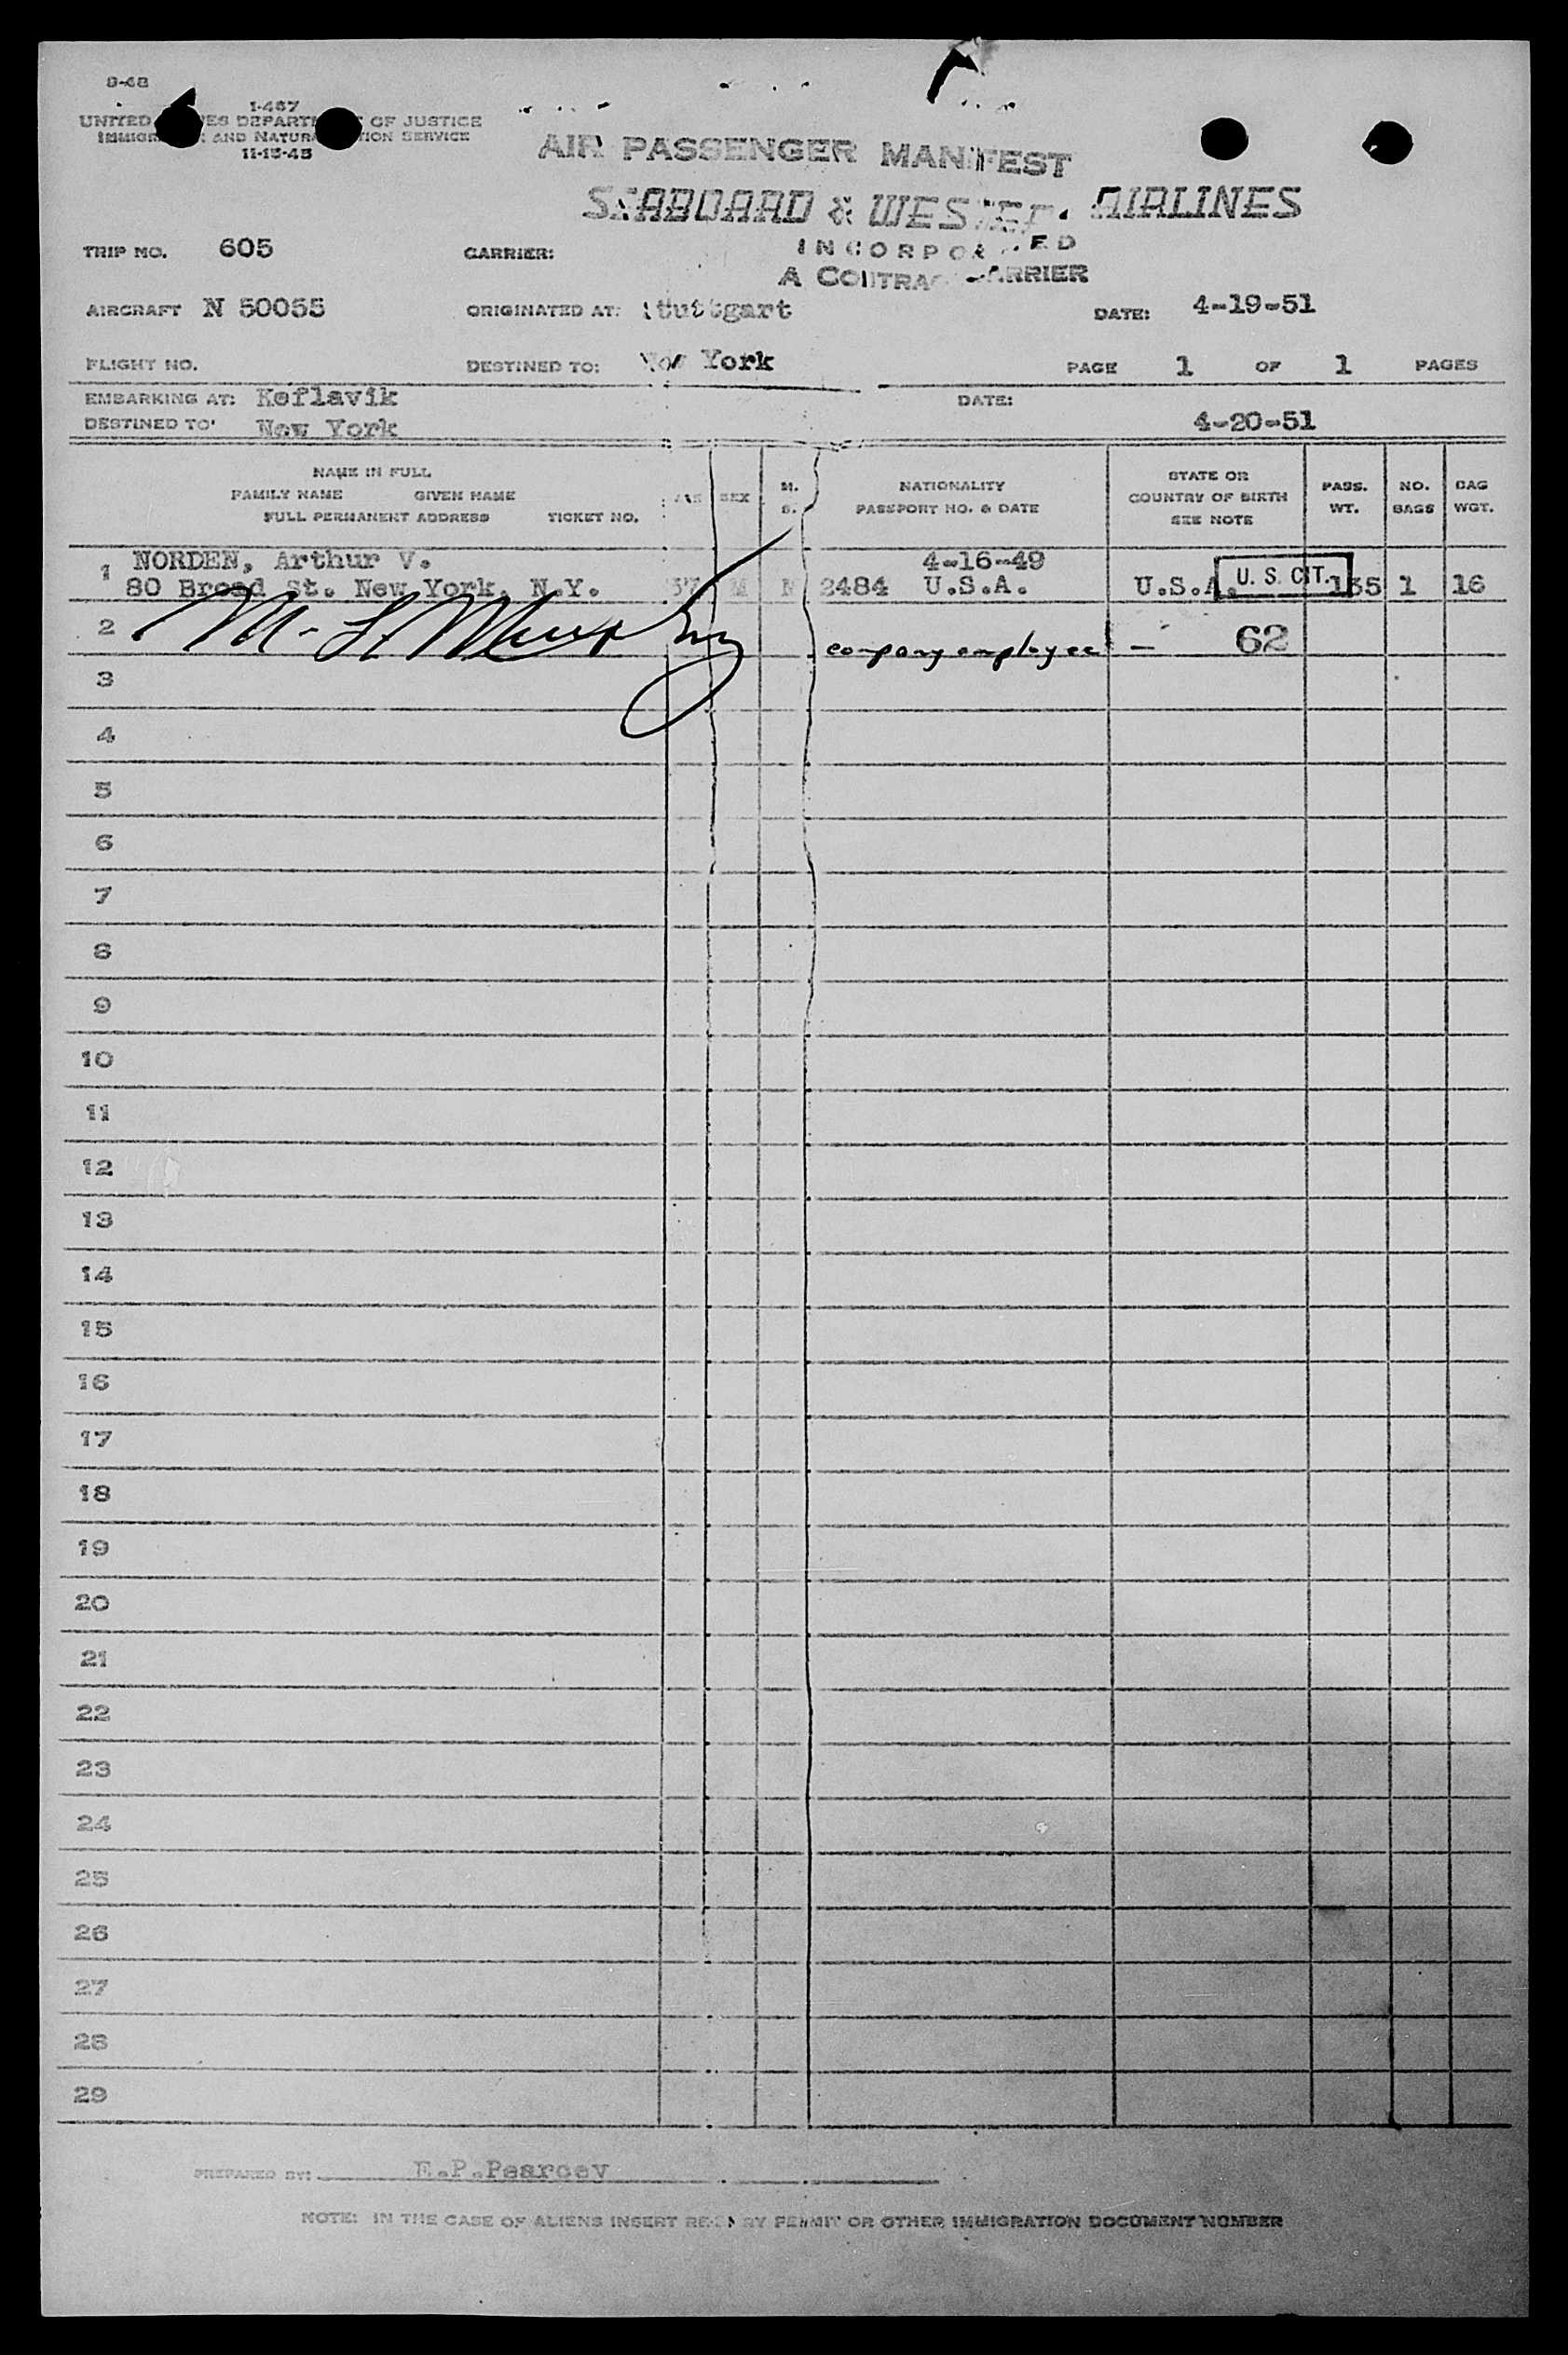 9-48
I-467
UNITED ES DEPART OF JUSTICE
IMMIGR AND NATUR TION SERVICE
11-15-45
AIR PASSENGER MANIFEST
SEABOARD & WESTER AIRLINES
INCORPORATED
A CONTRAC ARRIER
TRIP NO. 605 CARRIER:
AIRCRAFT N 50055 ORIGINATED AT: Stuttgart DATE: 4-19-51
FLIGHT NO. DESTINED TO: New York PAGE 1 OF 1 PAGES
EMBARKING AT: Keflavik DATE:
DESTINED TO: New York 4-20-51
NAME IN FULL
FAMILY NAME GIVEN NAME
FULL PERMANENT ADDRESS TICKET NO.
AGE SEX M. S.
NATIONALITY
PASSPORT NO. & DATE
STATE OR
COUNTRY OF BIRTH
SEE NOTE
PASS. WT.
NO. BAGS
BAG WGT.
1 NORDEN, Arthur V. 4-16-49
80 Broad St. New York, N.Y. 37 M M 2484 U.S.A. U.S.A. U. S. CIT. 1 16
2 M. L. Murphy company employee - 62
3
4
5
6
7
8
9
10
11
12
13
14
15
16
17
18
19
20
21
22
23
24
25
26
27
28
29
PREPARED BY: E.P.Pearcey
NOTE: IN THE CASE OF ALIENS INSERT RE-ENTRY PERMIT OR OTHER IMMIGRATION DOCUMENT NUMBER